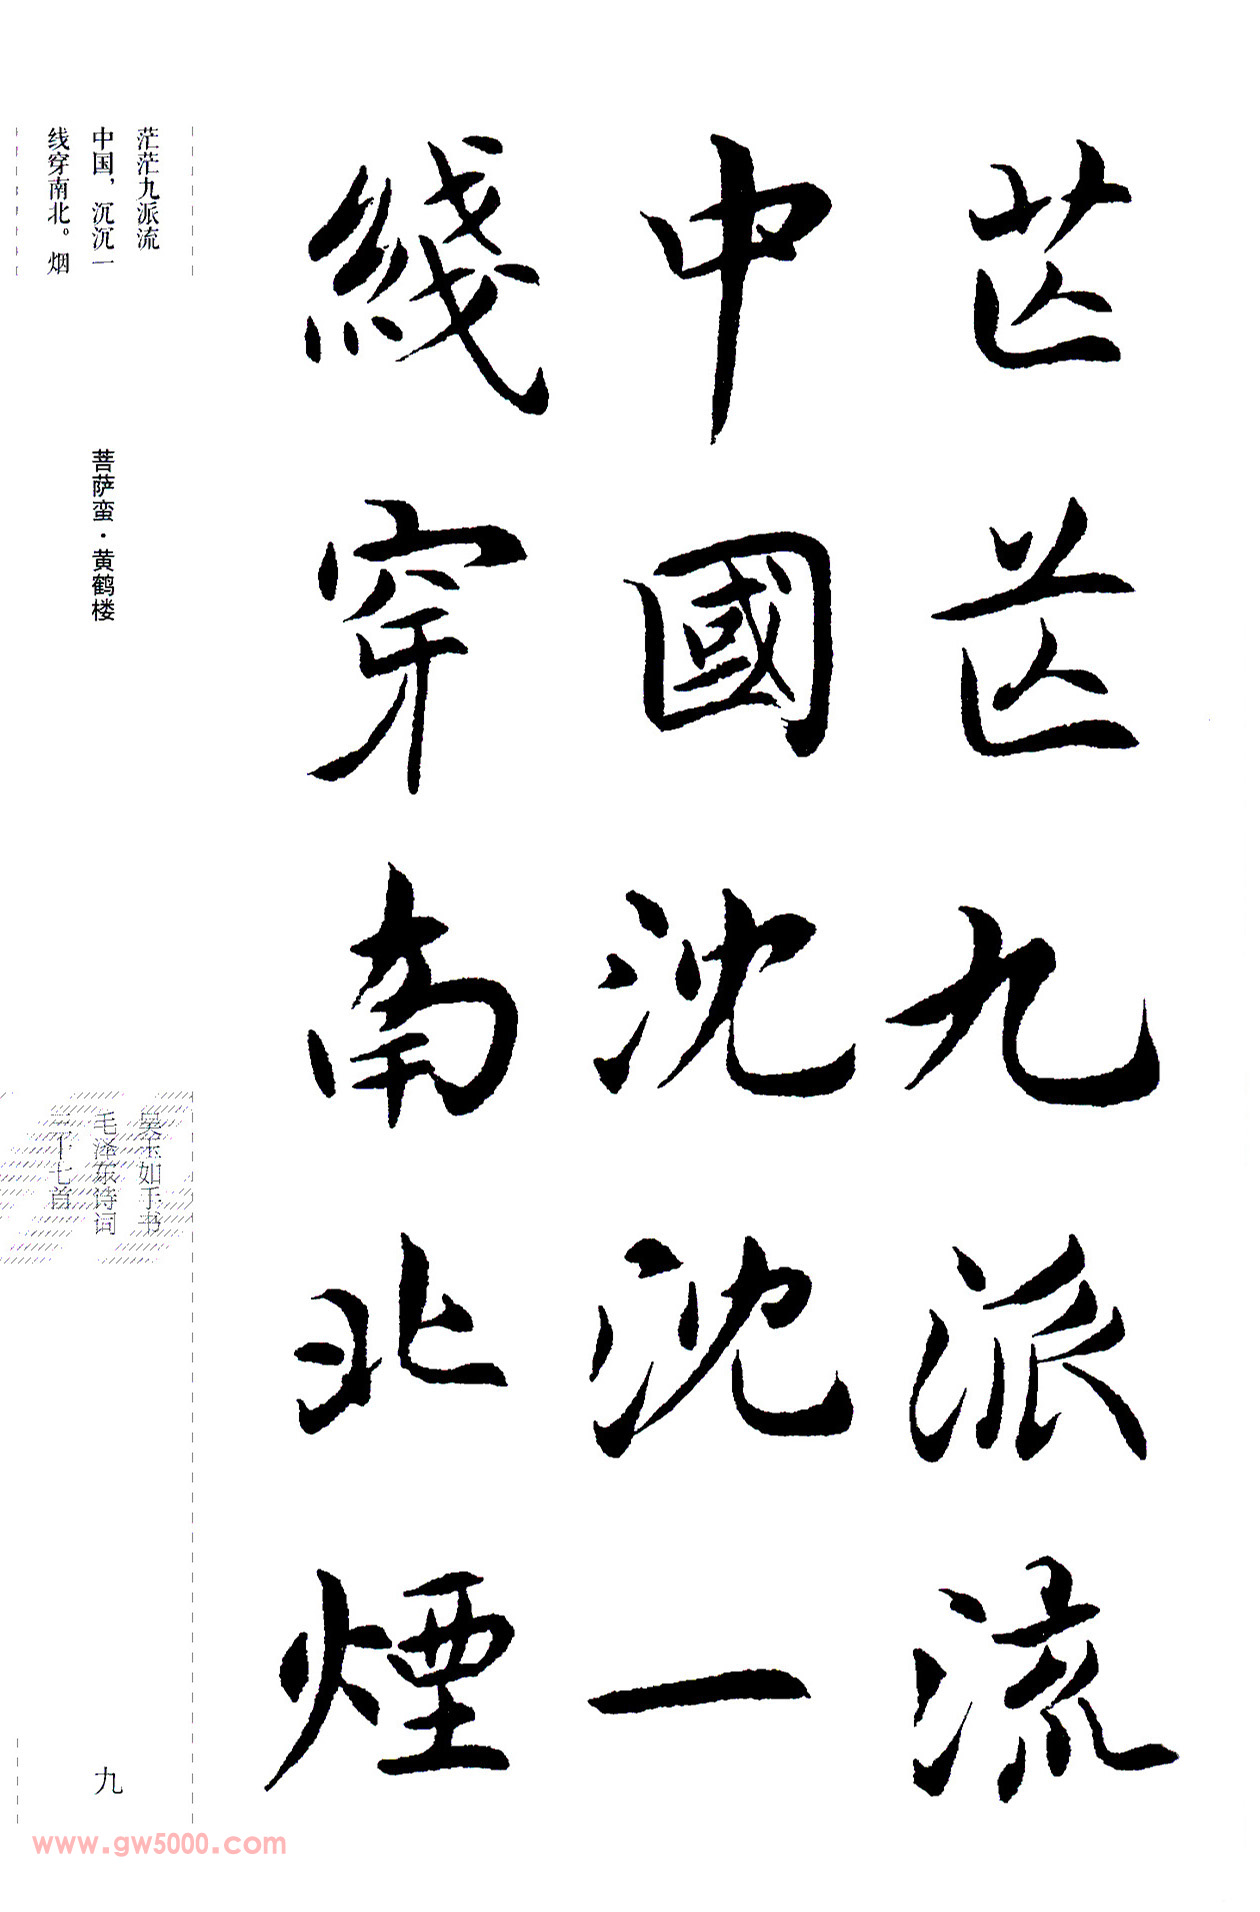 茫茫九派流
中國沈沈一
綫穿南北煙
茫茫九派流
中国，沉沉一
线穿南北。烟
菩萨蛮·黄鹤楼
吴玉如手书
毛泽东诗词
三十七首
九
www.gw5000.com